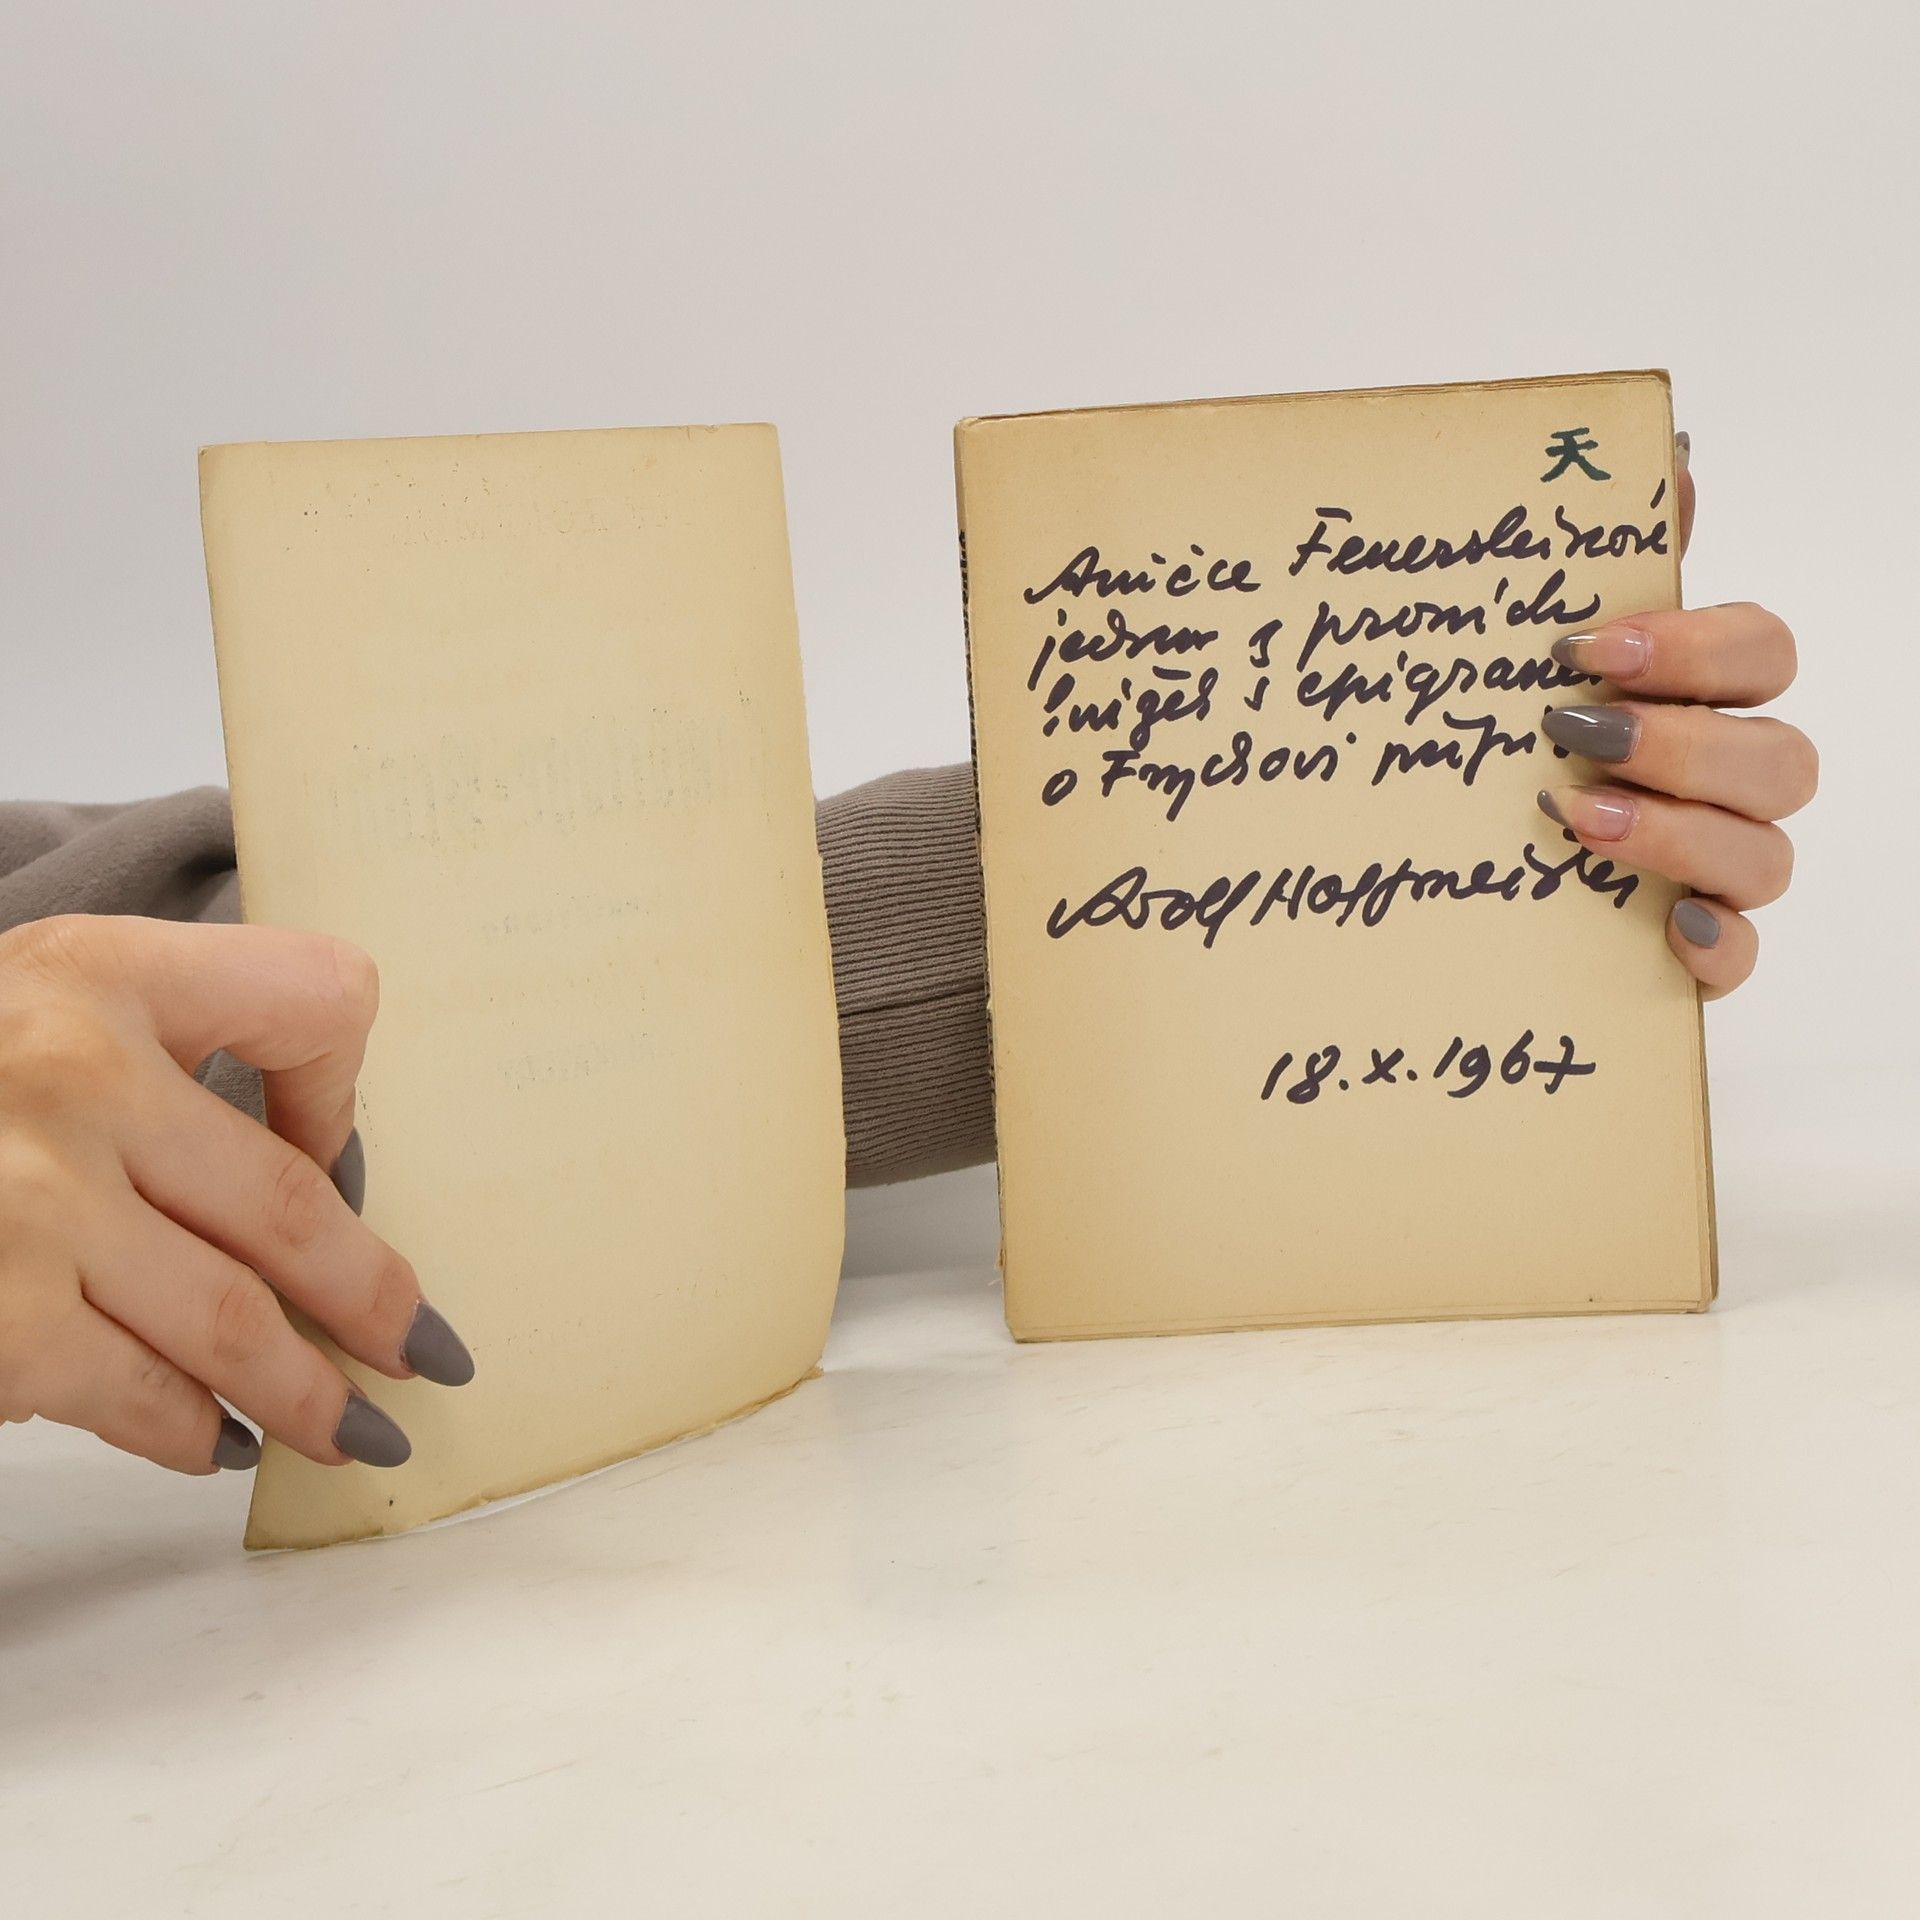 天
Aničce Feuersteinové
jednu z prvních
knížek s epigrame
o Frychovi
Adolf Hoffmeister
18.X.1967